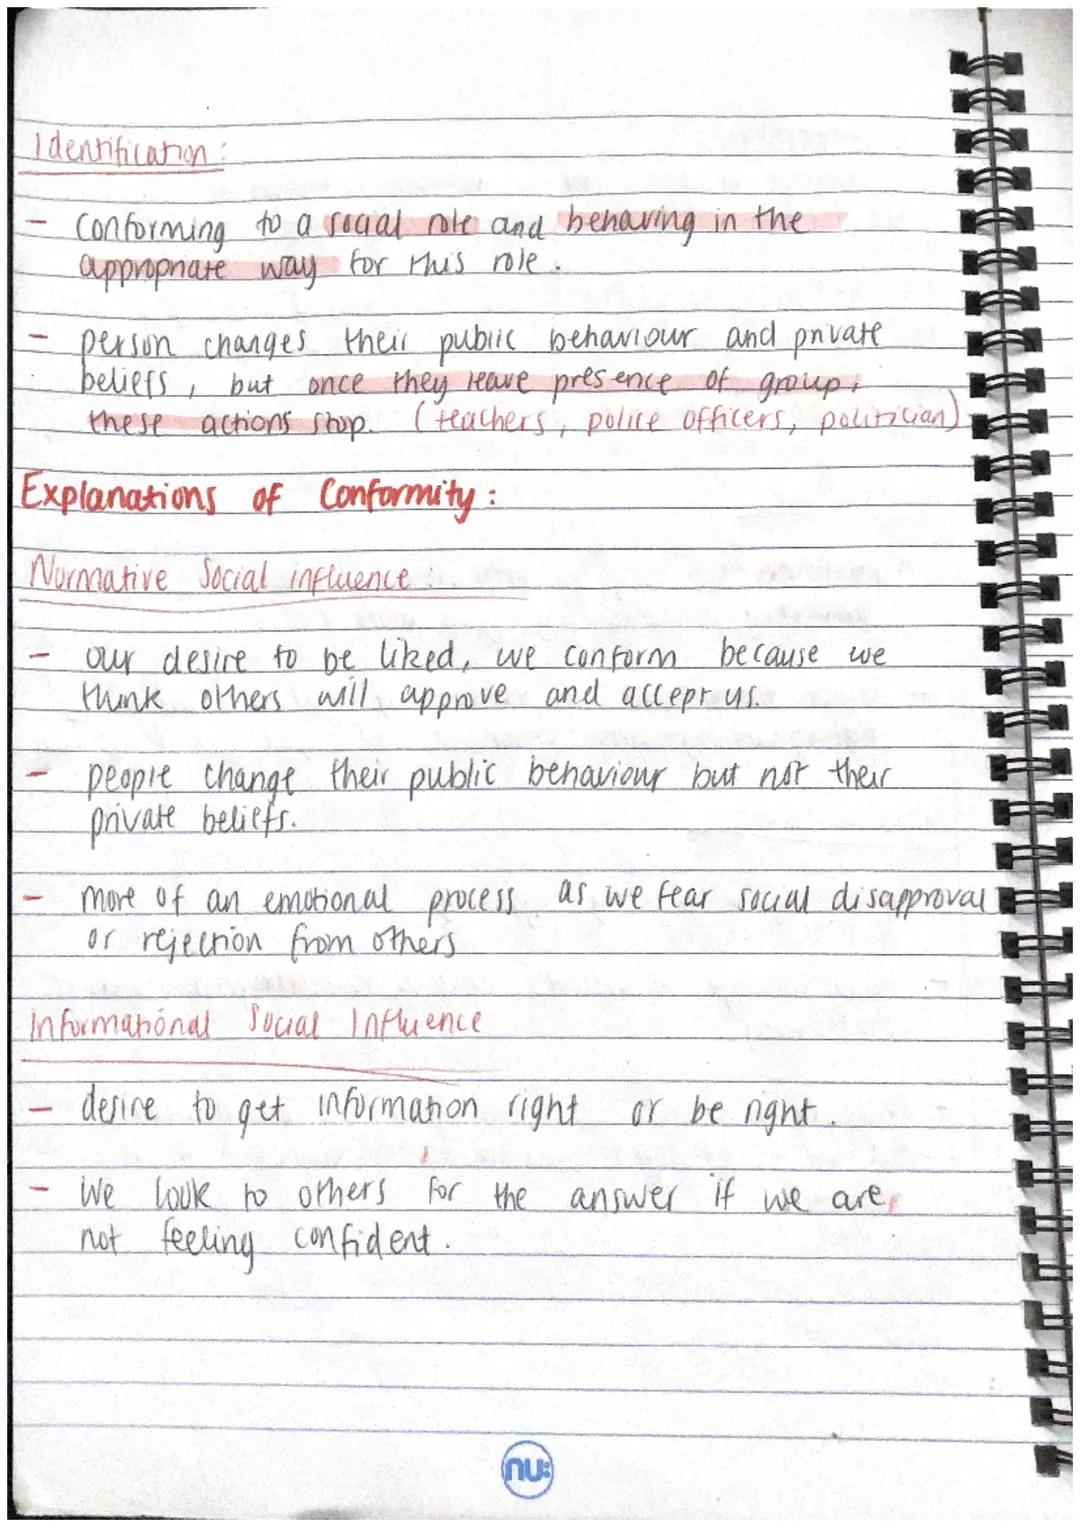 Identification:
- Conforming to a social role and behaving in the
appropriate way for this role.
- person changes their public behaviour and private
beliefs, but once they leave presence of group,
these actions stop. (teachers, police officers, politician)
Explanations of Conformity:
Normative Social influence:
- our desire to be liked, we conform because we
think others will approve and accept us.
- people change their public behaviour but not their
private beliefs.
- more of an emotional process as we fear social disapproval
or rejection from others
Informational Social Influence
- desire to get information right or be right.
- We look to others for the answer if we are
not feeling confident.
nu: